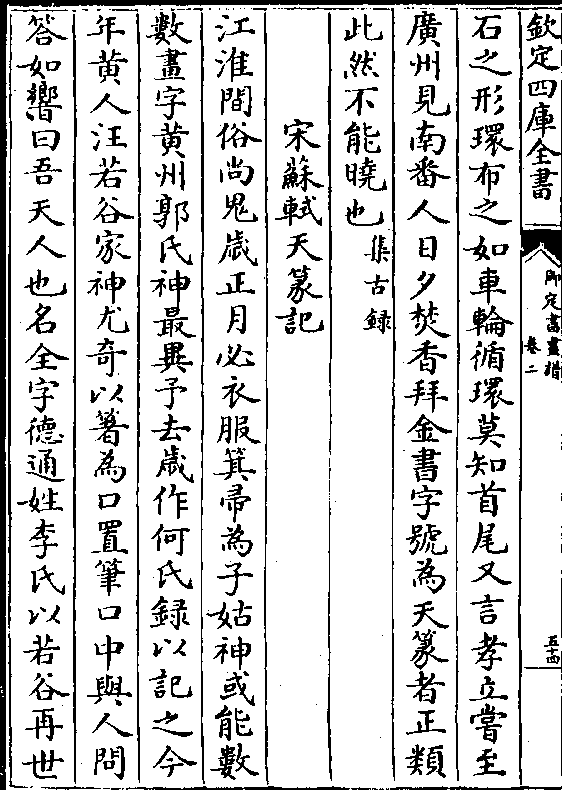 欽定四庫全書
御定書畫譜
卷二
五十四
石之形環布之如車輪循環莫知首尾又言孝立嘗至
廣州見南番人日夕焚香拜金書字號為天篆者正類
此然不能曉也集古録
宋蘇軾天篆記
江淮間俗尚鬼歳正月必衣服箕帚為子姑神或能數
數畫字黄州郭氏神最異予去歳作何氏録以記之今
年黄人汪若谷家神尤奇以箸為口置筆口中與人問
答如響曰吾天人也名全字德通姓李氏以若谷再世